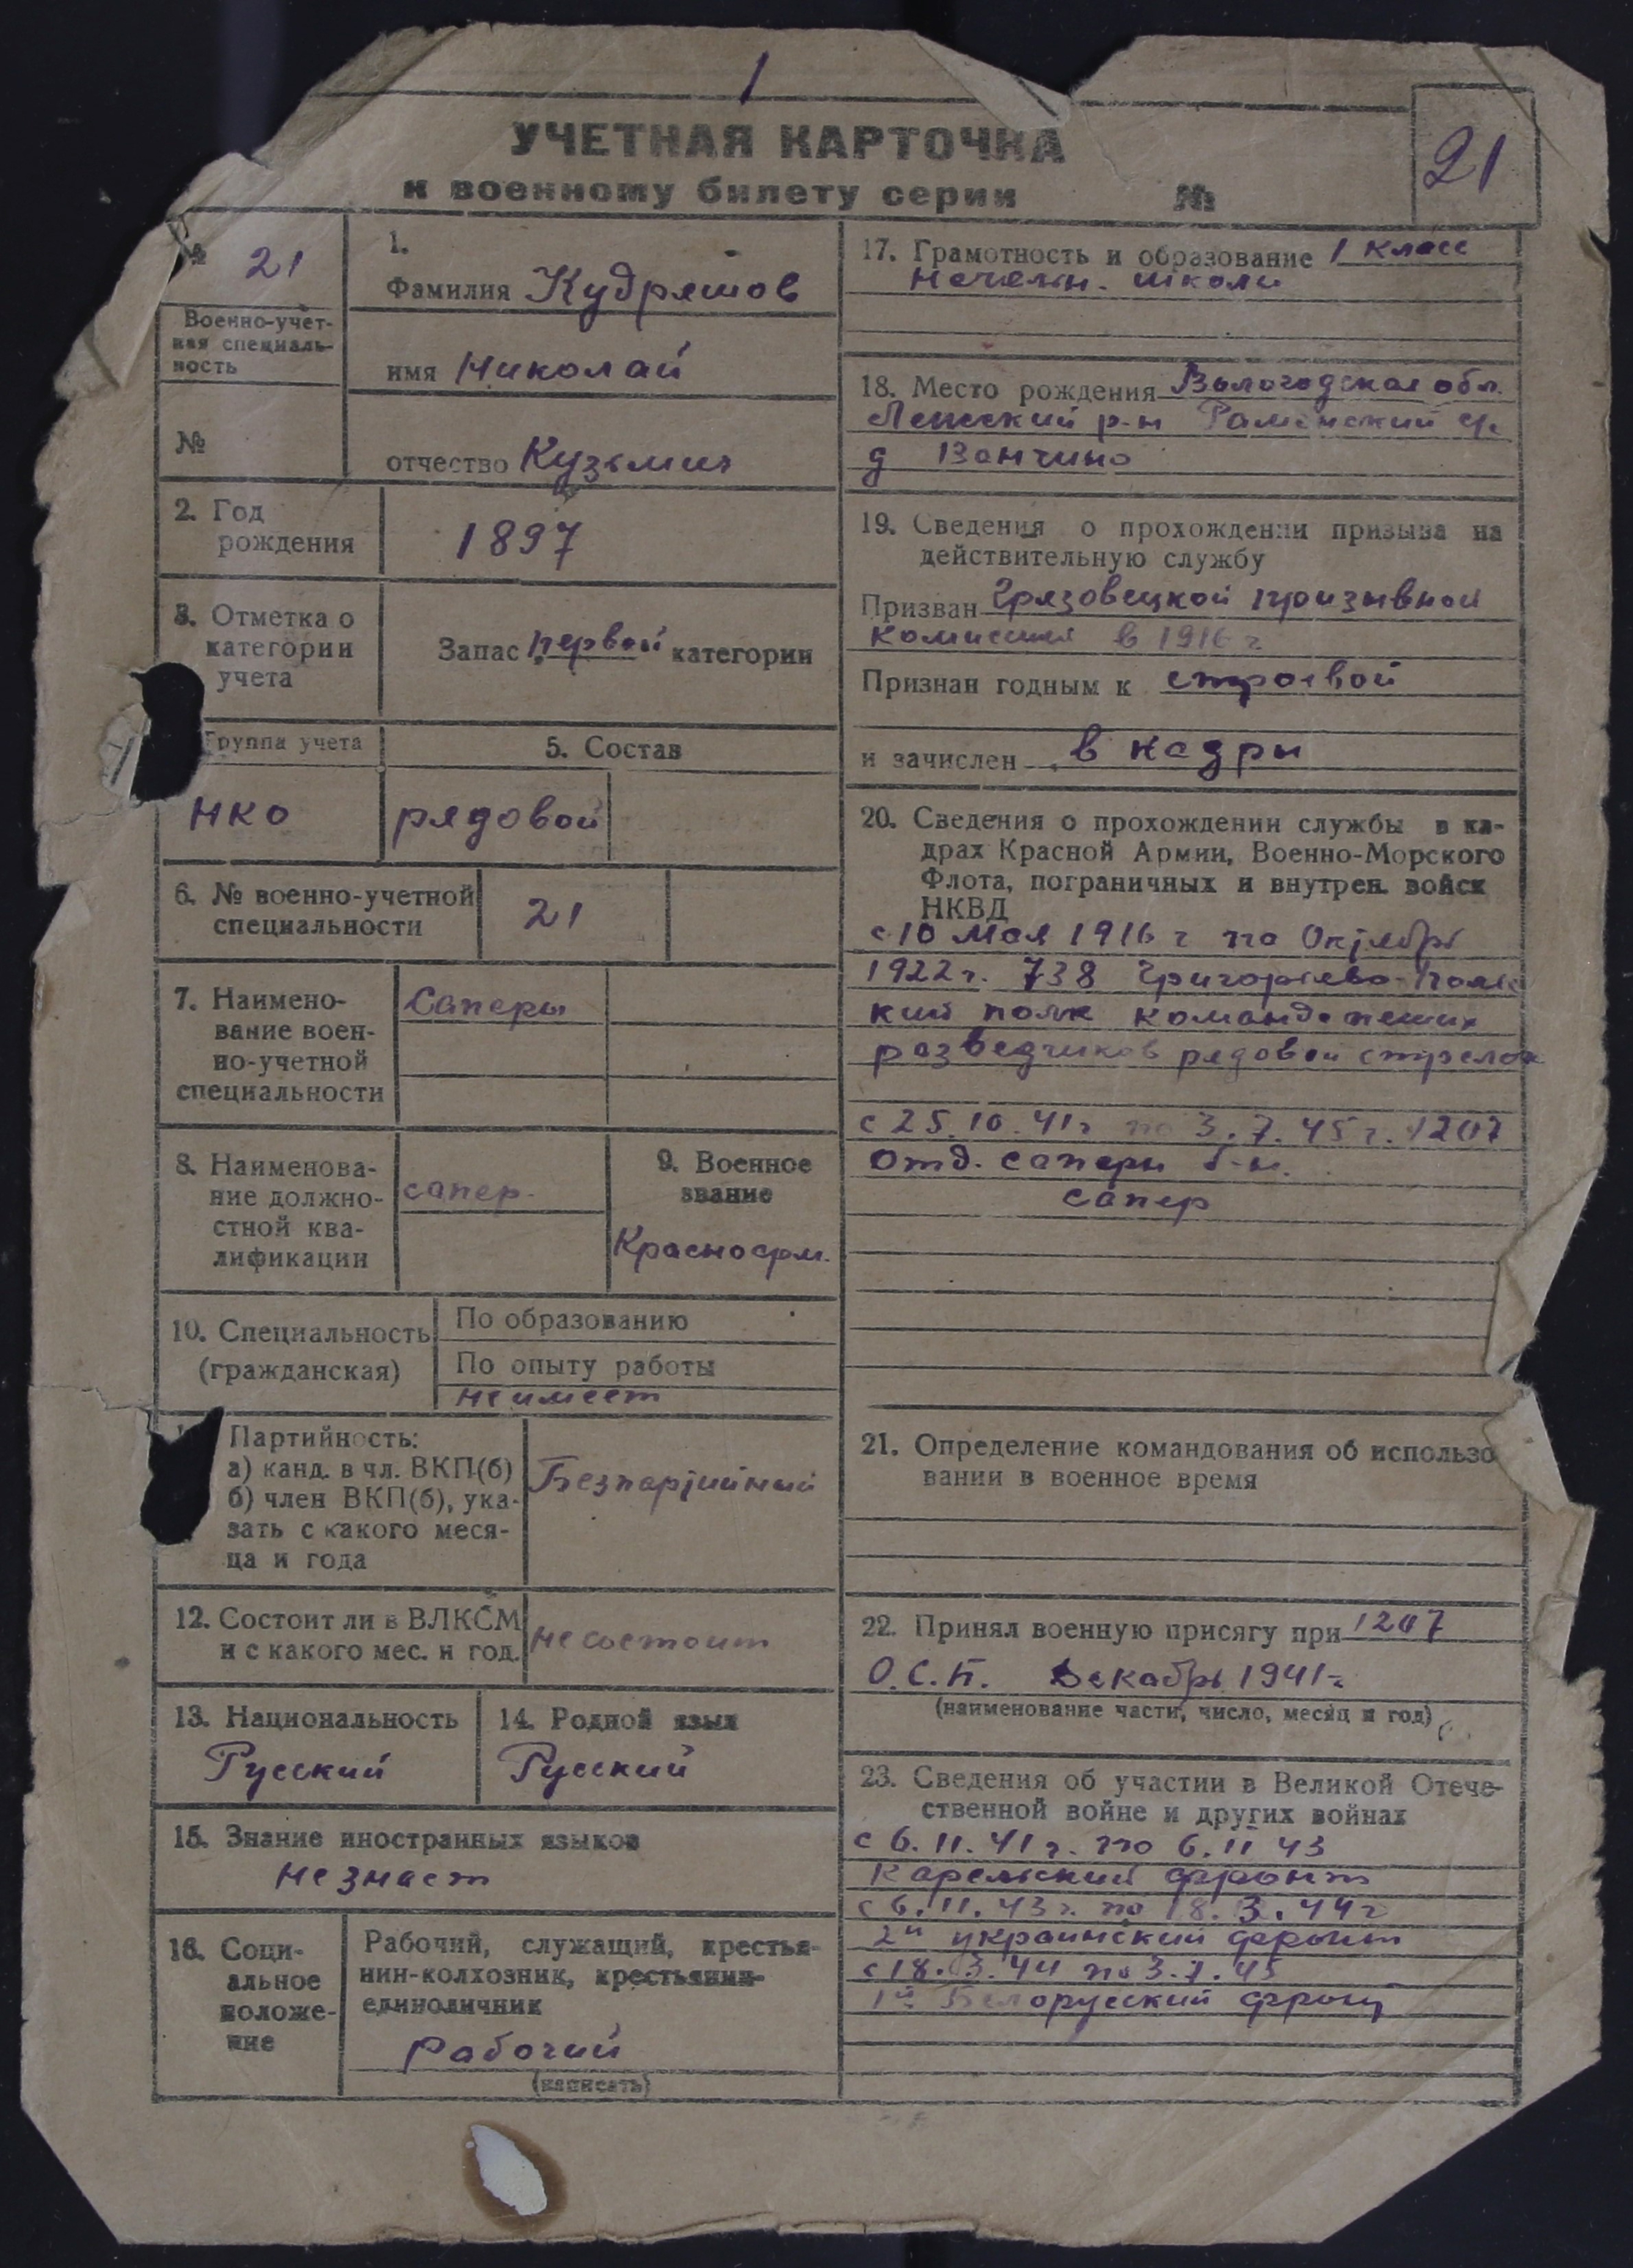 1
УЧЕТНАЯ КАРТОЧКА
к военному билету серии №
21
№ 21
Военно-учет-
ная специаль-
ность
№
1.
Фамилия Кудряшов
имя Николай
отчество Кузьмич
2. Год
рождения
1897
3. Отметка о
категории
учета
Запас первой категории
Группа учета
НКО
5. Состав
рядовой
6. № военно-учетной
специальности
21
7. Наимено-
вание воен-
но-учетной
специальности
Саперы
8. Наименова-
ние должно-
стной ква-
лификации
сапер.
9. Военное
звание
Красноарм.
10. Специальность
(гражданская)
По образованию
По опыту работы
не имеет
Партийность:
а) канд. в чл. ВКП(б)
б) член ВКП(б), ука-
зать с какого меся-
ца и года
Безпартийный
12. Состоит ли в ВЛКСМ
и с какого мес. и год.
не состоит
13. Национальность
Русский
14. Родной язык
Русский
15. Знание иностранных языков
не знает
16. Соци-
альное
положе-
ние
Рабочий, служащий, крестья-
нин-колхозник, крестьянин-
единоличник
рабочий
(написать)
17. Грамотность и образование 1 класс
начальн. школы
18. Место рождения Вологодская обл.
Лежский р-н Раменский с/с
д Ванчино
19. Сведения о прохождении призыва на
действительную службу
Призван Грязовецкой призывной
комиссией в 1916 г
Признан годным к строевой
и зачислен в кадры
20. Сведения о прохождении службы в ка-
драх Красной Армии, Военно-Морского
Флота, пограничных и внутрен. войск
НКВД
с 10 мая 1916 г по Октябрь
1922 г. 738 Григориево-
кий полк команда пеших
разведчиков рядовой стрелок
с 25.10.41 г по 3.7.45 г. 1207
отд. саперн б-н.
сапер
21. Определение командования об использо
вании в военное время
22. Принял военную присягу при 1207
О.С.Б. Декабрь 1941 г
(наименование части, число, месяц и год)
23. Сведения об участии в Великой Отече-
ственной войне и других войнах
с 6.11.41 г. по 6.11 43
Карельский фронт
с 6.11.43 г. по 18.3.44 г
2й украинский фронт
с 18.3.44 по 3.7.45
1й Белорусский фронт